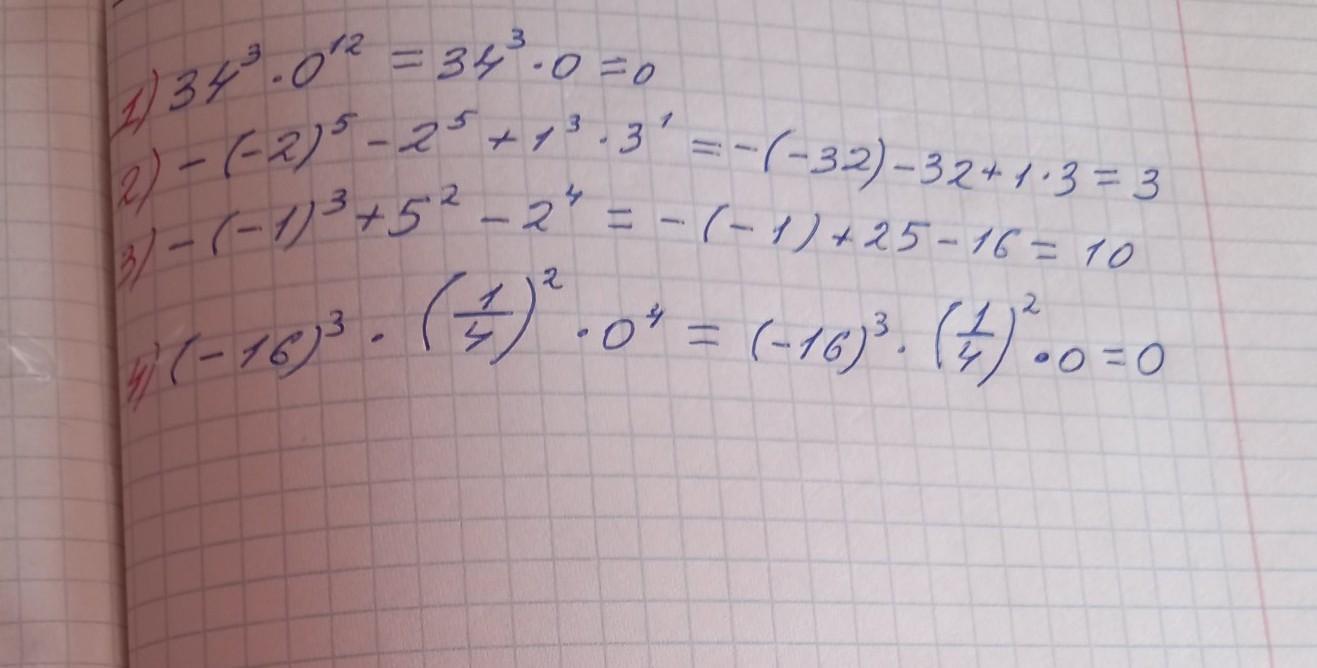 1) 34³ · 0¹² = 34³ · 0 = 0
2) -(-2)⁵ - 2⁵ + 1³ · 3¹ = -(-32) - 32 + 1 · 3 = 3
3) -(-1)³ + 5² - 2⁴ = -(-1) + 25 - 16 = 10
4) (-16)³ · (1/4)² · 0⁴ = (-16)³ · (1/4)² · 0 = 0